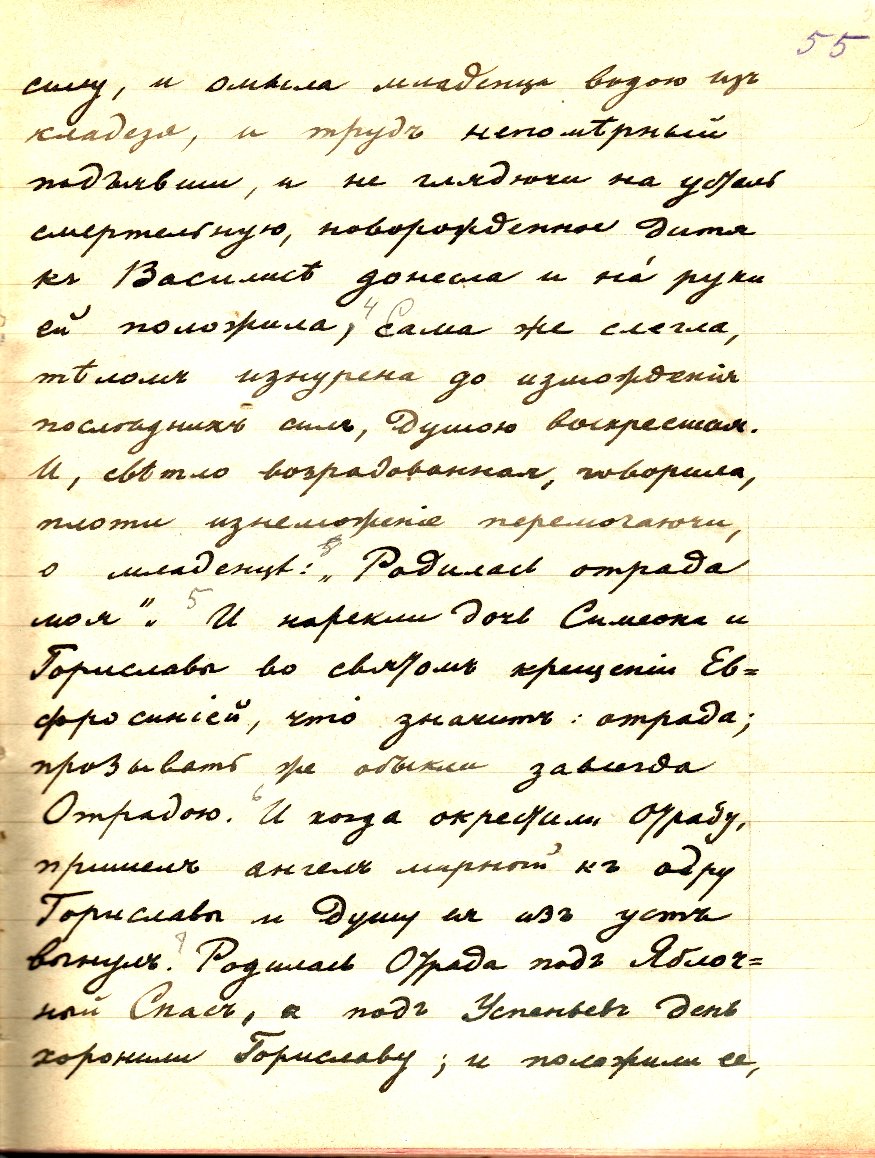 55
силу, и омыла младенца водою изъ
кладезя, и трудъ непомѣрный
подъявши, и не глядючи на убыль
смертельную, новорожденное дитя
къ Василисѣ донесла и на́ руки
ей положила; 4 Сама же слегла,
тѣломъ изнурена до изможденія
послѣднихъ силъ, душою воскресшая.
И, свѣтло возрадованная, говорила,
плоти изнеможеніе перемогаючи,
о младенцѣ: „Родилась отрада
моя". 5 И нарекли дочь Симеона и
Гориславы во святомъ крещеніи Ев=
фросиніей, что значитъ: отрада;
прозывать же обыкли завсегда
Отрадою. 6 И когда окрестили Отраду,
пришелъ ангелъ мирный къ одру
Гориславы и душу ея изъ устъ
вынулъ. 7 Родилась Отрада подъ Яблоч=
ный Спасъ, а подъ Успеньевъ день
хоронили Гориславу; и положили ее,